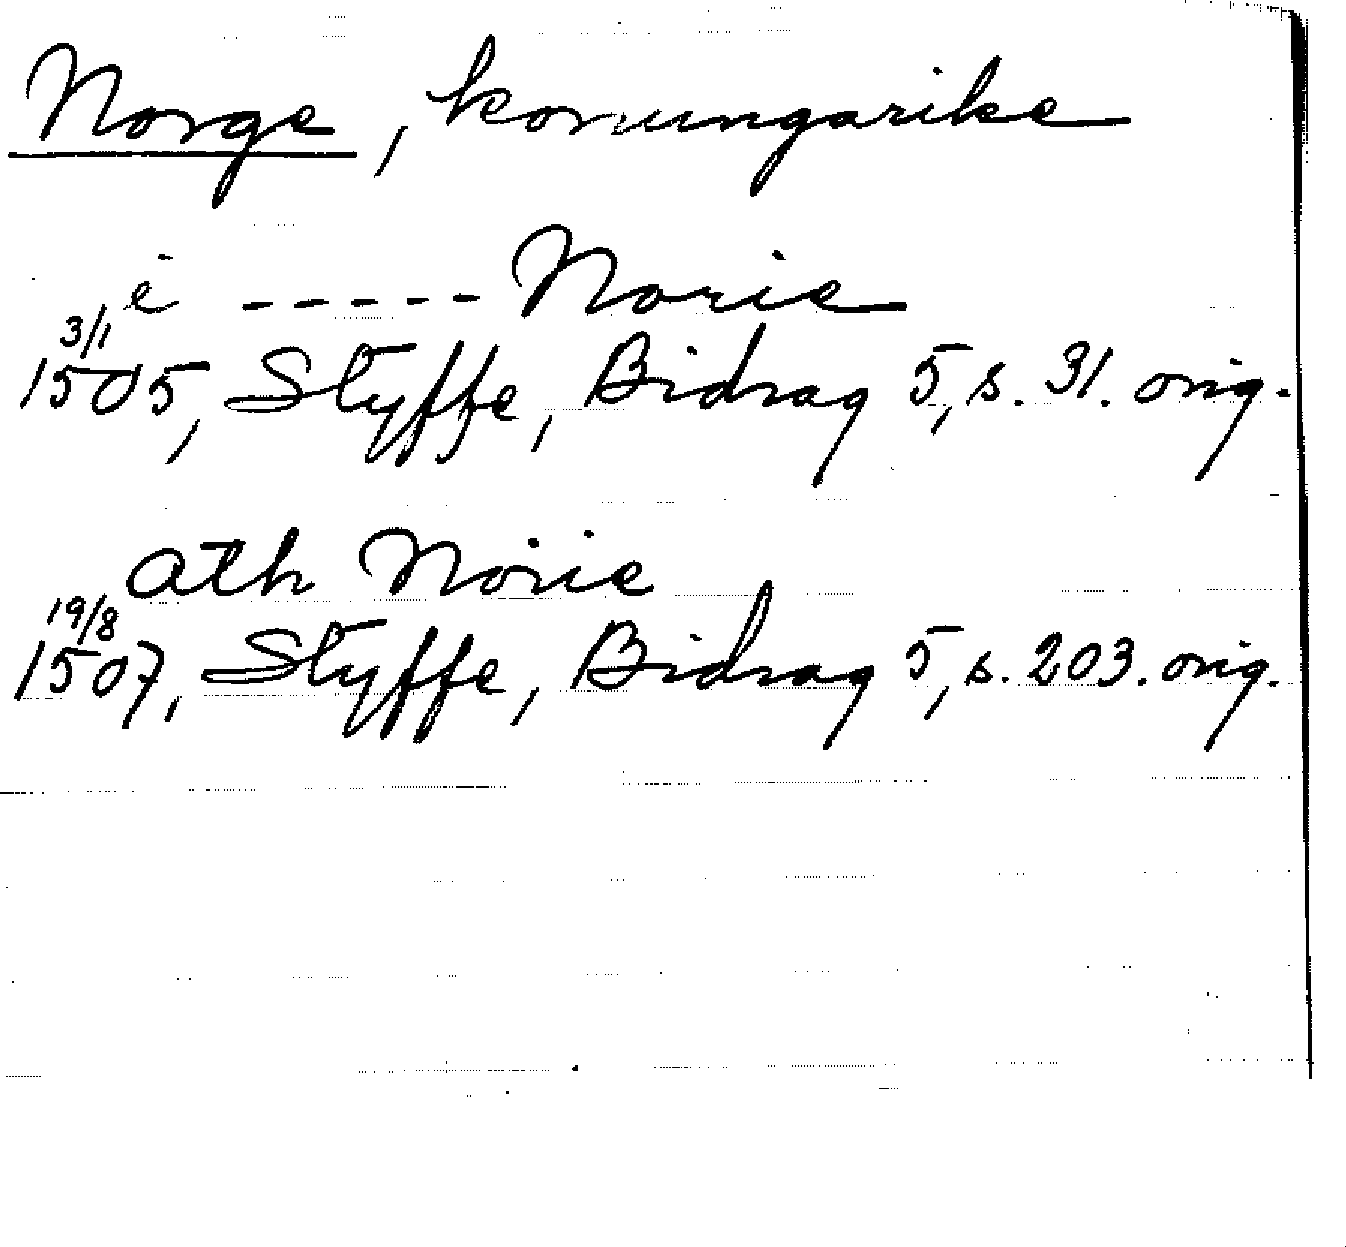 Norge, konungarike
i ----- Norie
3/1
1505, Styffe, Bidrag 5, s. 31. orig.
ath Norie
19/8
1507, Styffe, Bidrag 5, s. 203. orig.